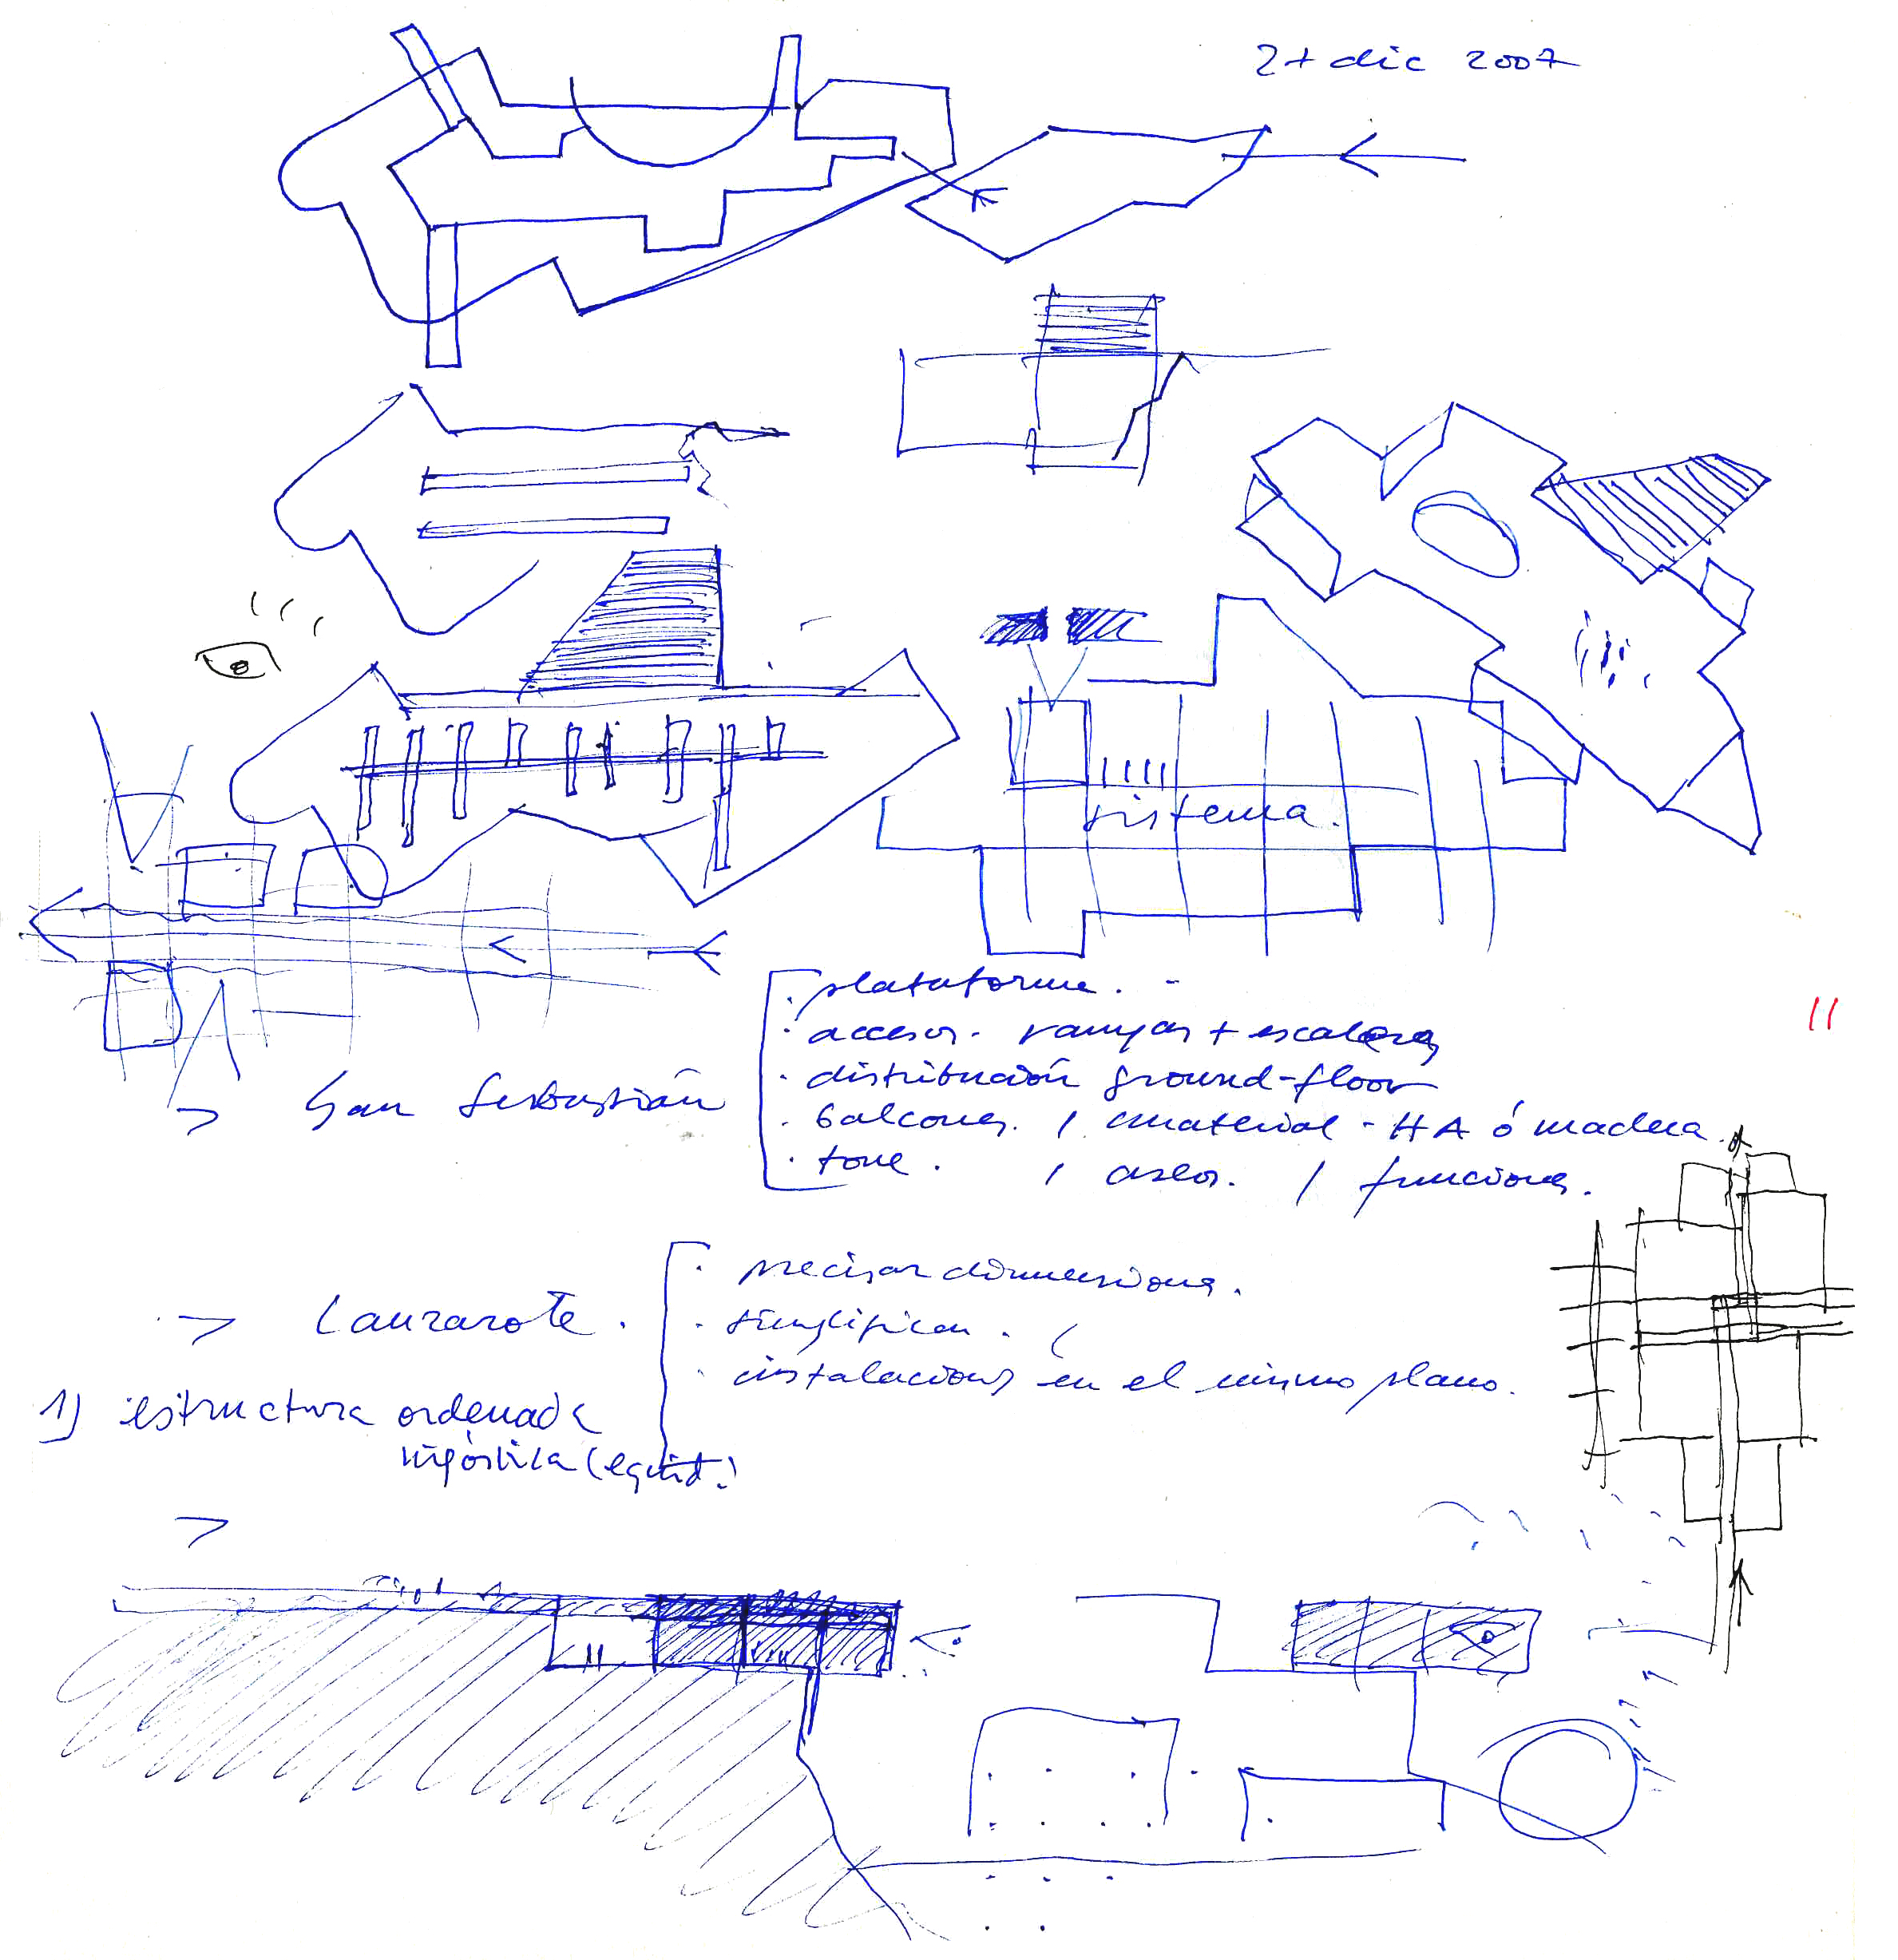 27 dic 2007
sistema.
11
· plataforma. -
· accesos. rampas + escaleras
-> San Sebastián
· distribución ground-floor
· balcones. / material - HA ó madera.
· torre. / aseos. / funciones.
· precisar dimensiones.
-> Lanzarote.
· simplificar. (
· instalaciones en el mismo plano.
1) estructura ordenada
hipóstila